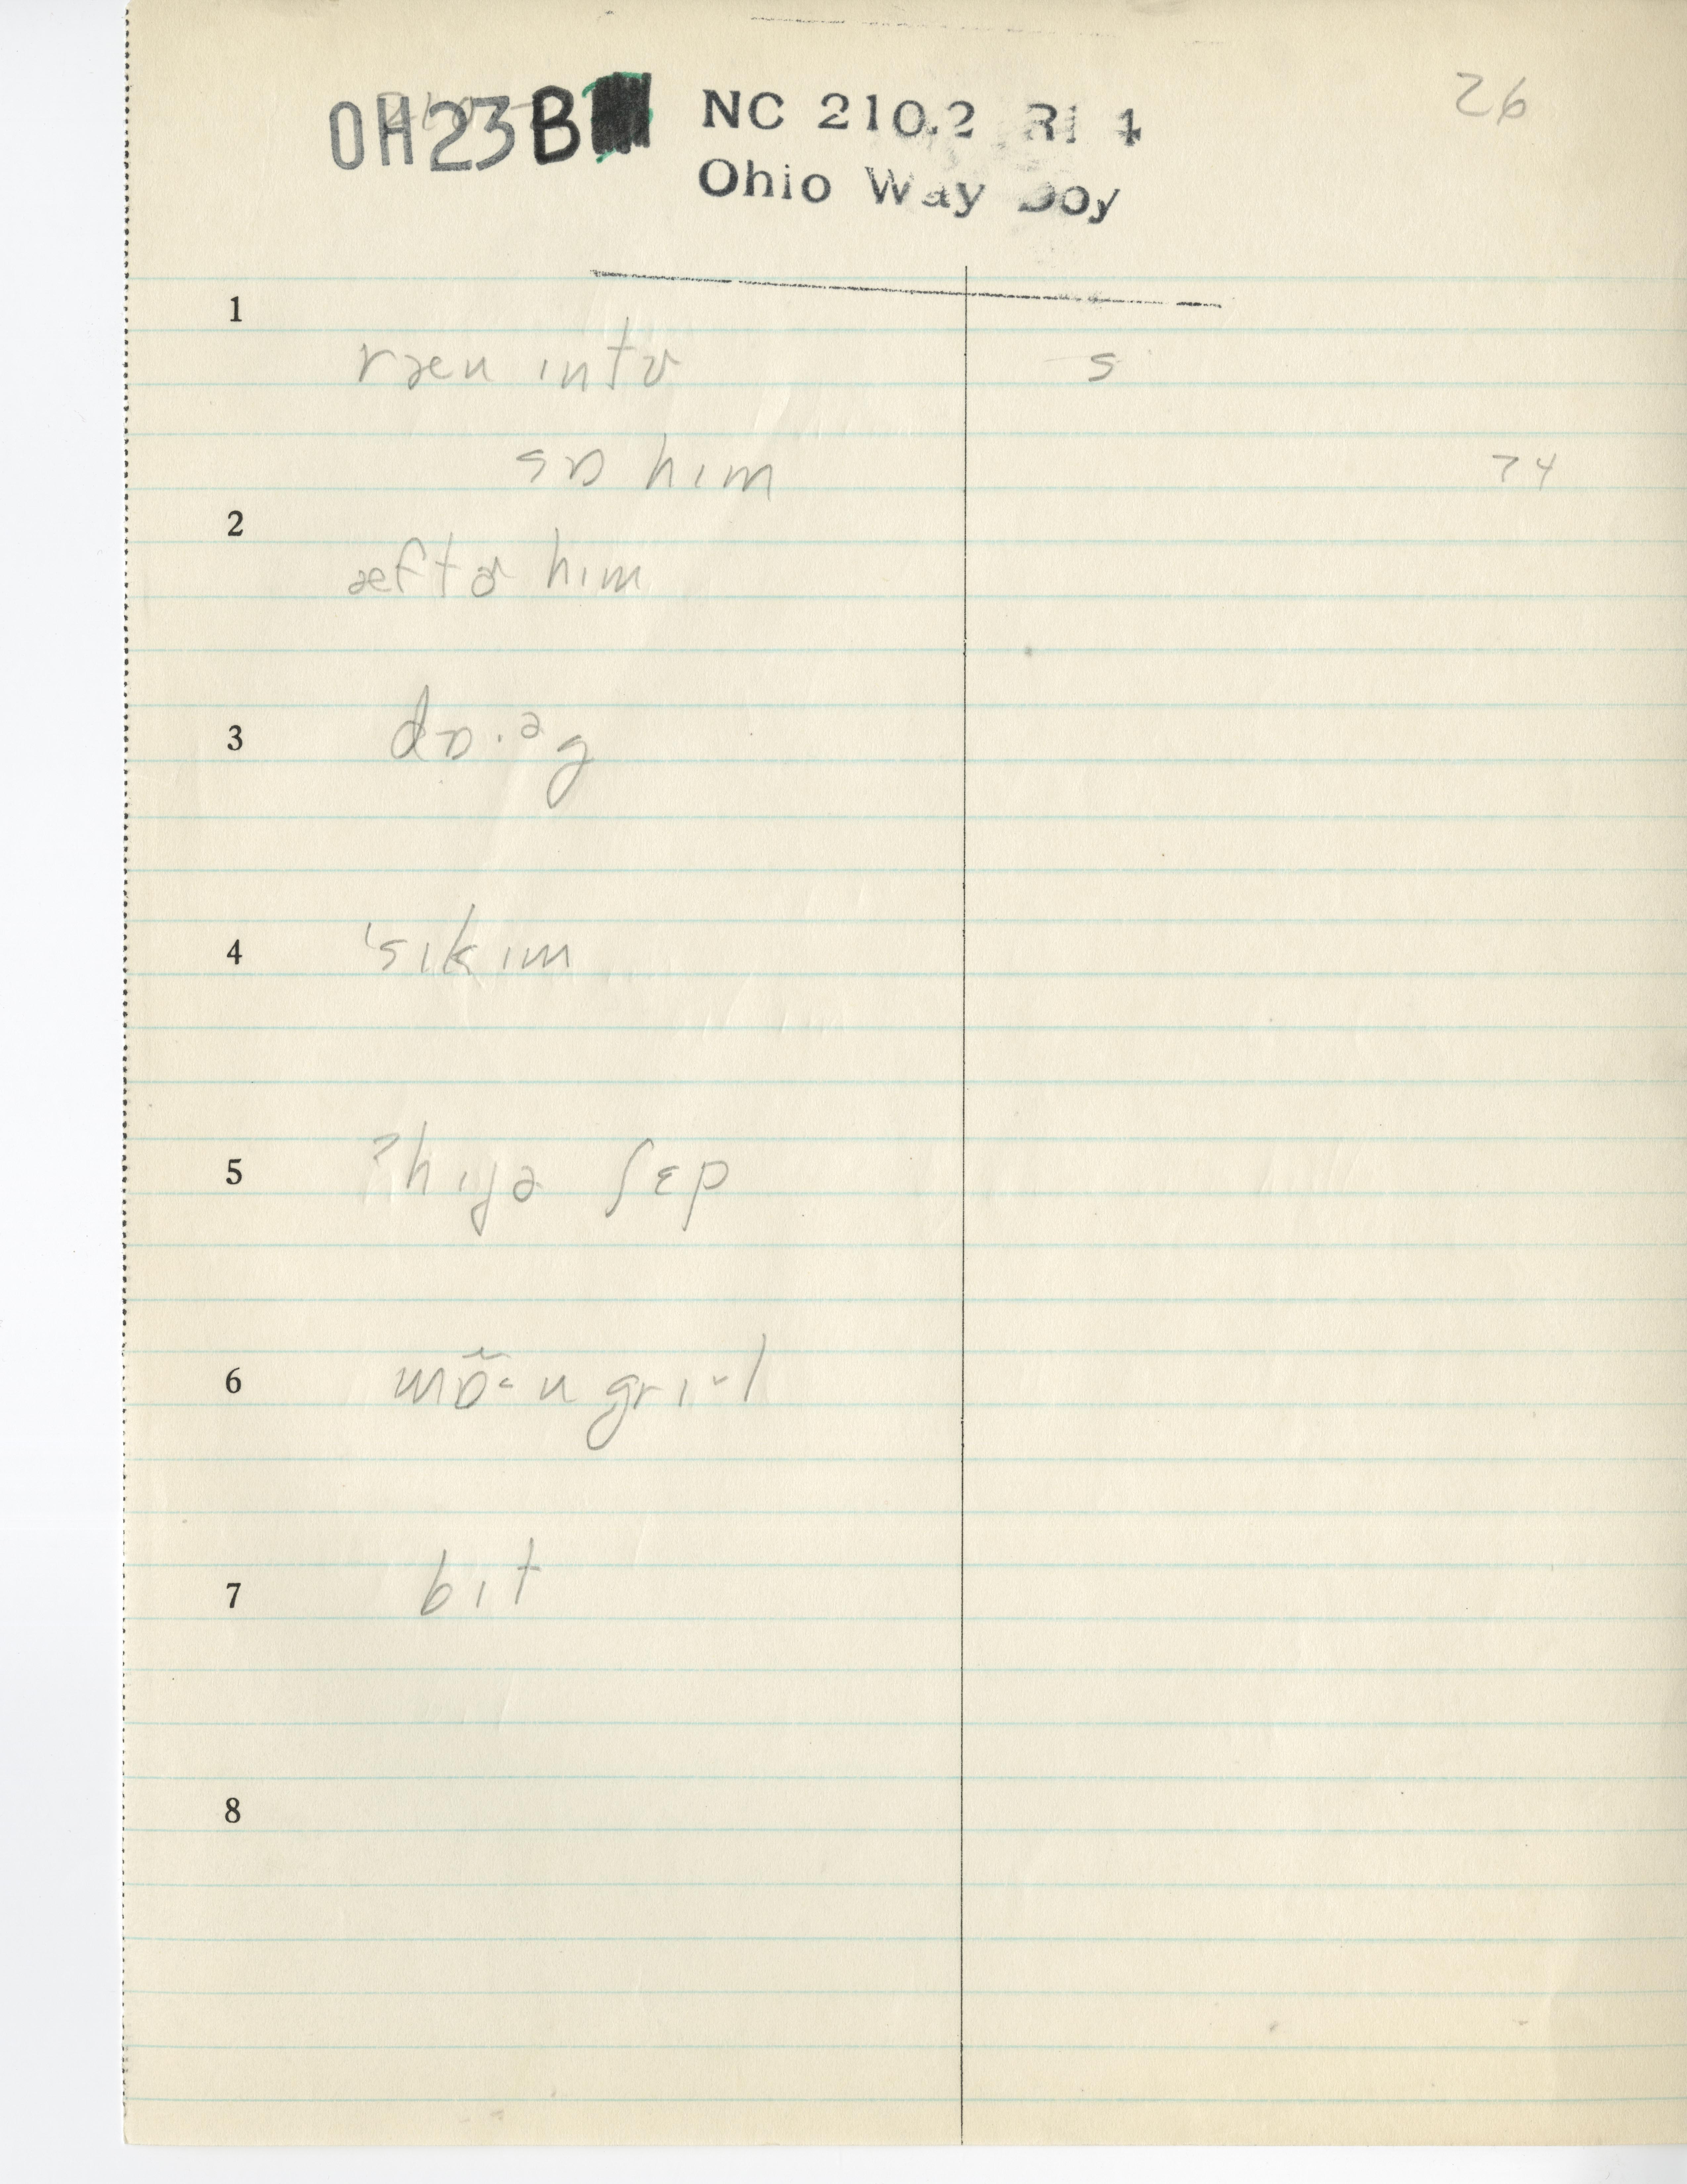 OH23B NC 210.2 Ri 4 26
Ohio Way Boy
1
ræn ɪntʊ s
sɒ hɪm 74
2
æftɚ hɪm
3 dɒ·ᵊg
4 ˈsɪkɪm
5 ?hɪjə ʃɛp
6 mɒ̃˞n grɪ˞l
7 bɪt
8